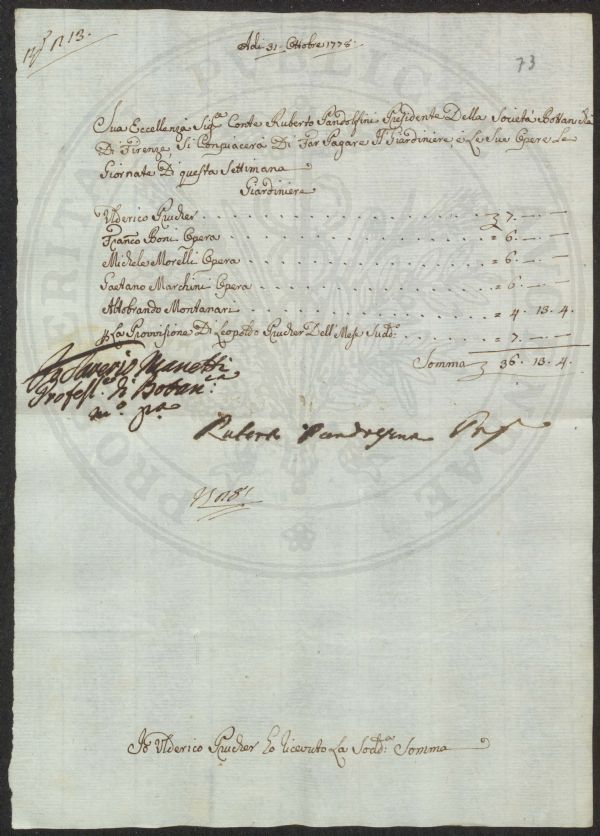 n.° 13.
Adi 31. Ottobre 1778.
73
Sua Eccellenza Sig.ra Conte Ruberto Pandolfini Presidente Della Società Bottan.ca
Di Firenze, Si Conpiacerà Di Far Pagare Il Giardiniere, e Le Sue Opere Le
Giornate Di questa Settimana
Giardiniere
Ulderico Prucher 7. — —
Franco Boni Opera = 6. — —
Michele Morelli Opera = 6. — —
Gaetano Marchini Opera = 6 — —
Aldobrando Montanari = 4. 13. 4.
p La Provvisione Di Leopoldo Prucher Dell Mese Sud.o = 7. — —
Somma 36. 13. 4.
Saverio Manetti
Profess.e di Botan.ca
m.o pa
Ruberto Pandolfini Pres
N 18
Io Ulderico Prucher ho ricevuto La Sodd.a Somma